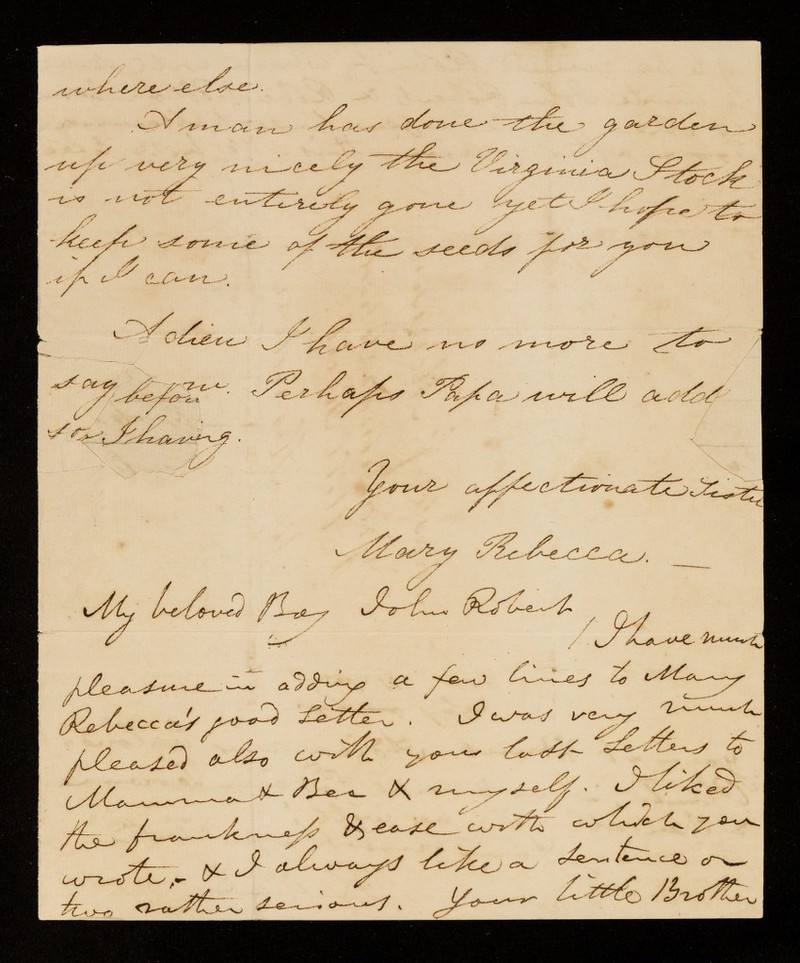 where else.
A man has done the garden
up very nicely the Virginia Stock
is not entirely gone yet I hope to
keep some of the seeds for you
if I can.
Adieu I have no more to
say Perhaps Papa will add
I having.
Your affectionate Sister
Mary Rebecca. —
My beloved Boy John Robert
I have much
pleasure in adding a few lines to Mary
Rebecca's good Letter. I was very much
pleased also with your last Letters to
Mamma & Bee & myself. I liked
the frankness & ease with which you
wrote, - & I always like a sentence or
two rather serious. Your little Brother